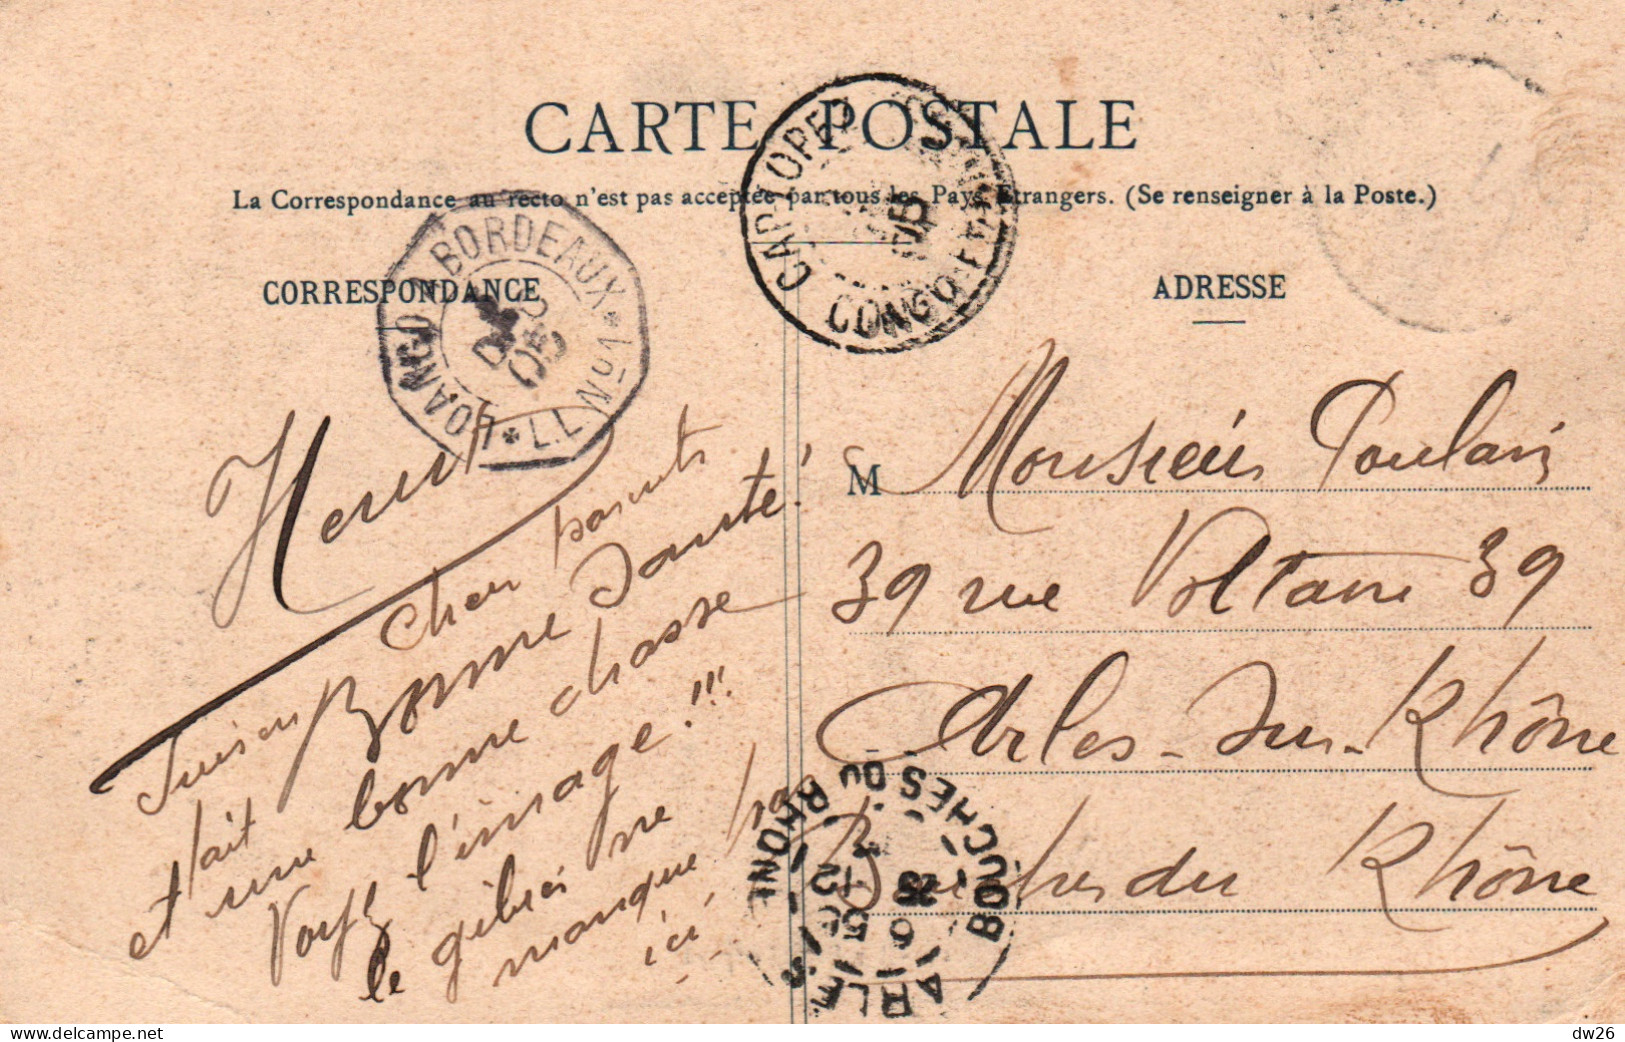 CARTE POSTALE
La Correspondance au recto n'est pas acceptée par tous les Pays Etrangers. (Se renseigner à la Poste.)
CORRESPONDANCE
ADRESSE
LOANGO À BORDEAUX * L.L Nº 1 *
DÉC 05
CAP LOPEZ
CONGO FRANÇAIS
M Monsieur Poulain
39 rue Voltaire 39
Arles-sur-Rhône
Bouches du Rhône
Chers parents
Bonne Santé!
et une bonne chasse
Voyez l'image!!!
le gibier ne
manque pas
ici.
ARLES BOUCHES DU RHONE
dw26